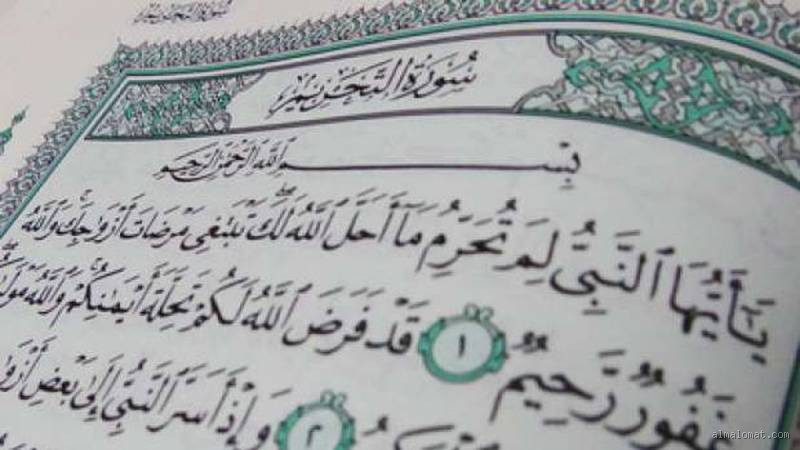 سُورَةُ التَّحْرِيمِ
بِسْمِ ٱللَّهِ ٱلرَّحْمَٰنِ ٱلرَّحِيمِ
يَٰٓأَيُّهَا ٱلنَّبِىُّ لِمَ تُحَرِّمُ مَآ أَحَلَّ ٱللَّهُ لَكَ ۖ تَبْتَغِى مَرْضَاتَ أَزْوَٰجِكَ ۚ وَٱللَّهُ
غَفُورٌ رَّحِيمٌ ١ قَدْ فَرَضَ ٱللَّهُ لَكُمْ تَحِلَّةَ أَيْمَٰنِكُمْ ۚ وَٱللَّهُ
٢ وَإِذْ أَسَرَّ ٱلنَّبِىُّ إِلَىٰ بَعْضِ
almalomat.com